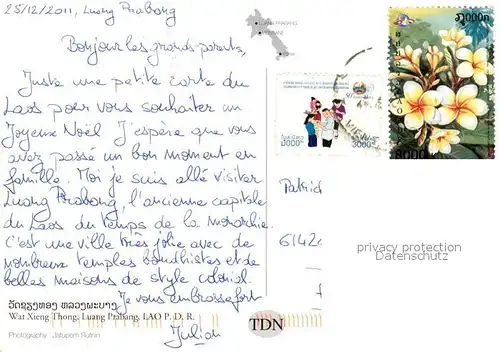 25/12/2011, Luang Prabang
Bonjour les grands-parents,
Juste une petite carte du
Laos pour vous souhaiter un
Joyeux Noël J'espère que vous
avez passé un bon moment en
famille. Moi je suis allé visiter
Luang Prabang, l'ancienne capitale
du Laos du temps de la monarchie
C'est une ville très jolie avec de
nombreux temples boudhistes et de
belles maisons de style colonial.
Je vous embrasse fort
Julien
ວັດຊຽງທອງ ຫລວງພະບາງ
Wat Xieng Thong, Luang Prabang, LAO P. D. R.
Photography : Jatuporn Rutnin
TDN
LUANG PRABANG
3000
8000
Patric
6142
privacy protection
Datenschutz